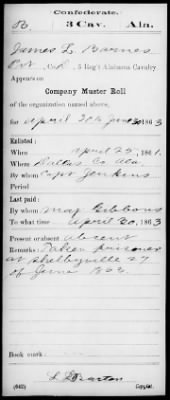 Confederate.
B. 3 Cav. Ala.
James L. Barnes
Pvt, Co. , 3 Reg't Alabama Cavalry
Appears on
Company Muster Roll
of the organization named above,
for April 30 to June 30 1863
Enlisted:
When April 25, 1861.
Where Dallas Co. Ala.
By whom Capt Jenkins
Period
Last paid:
By whom Maj Gibbons
To what time April 30, 1863
Present or absent absent
Remarks: Taken prisoner
at Shelbyville 27
of June 1863.
Book mark:
(642) Copyist.